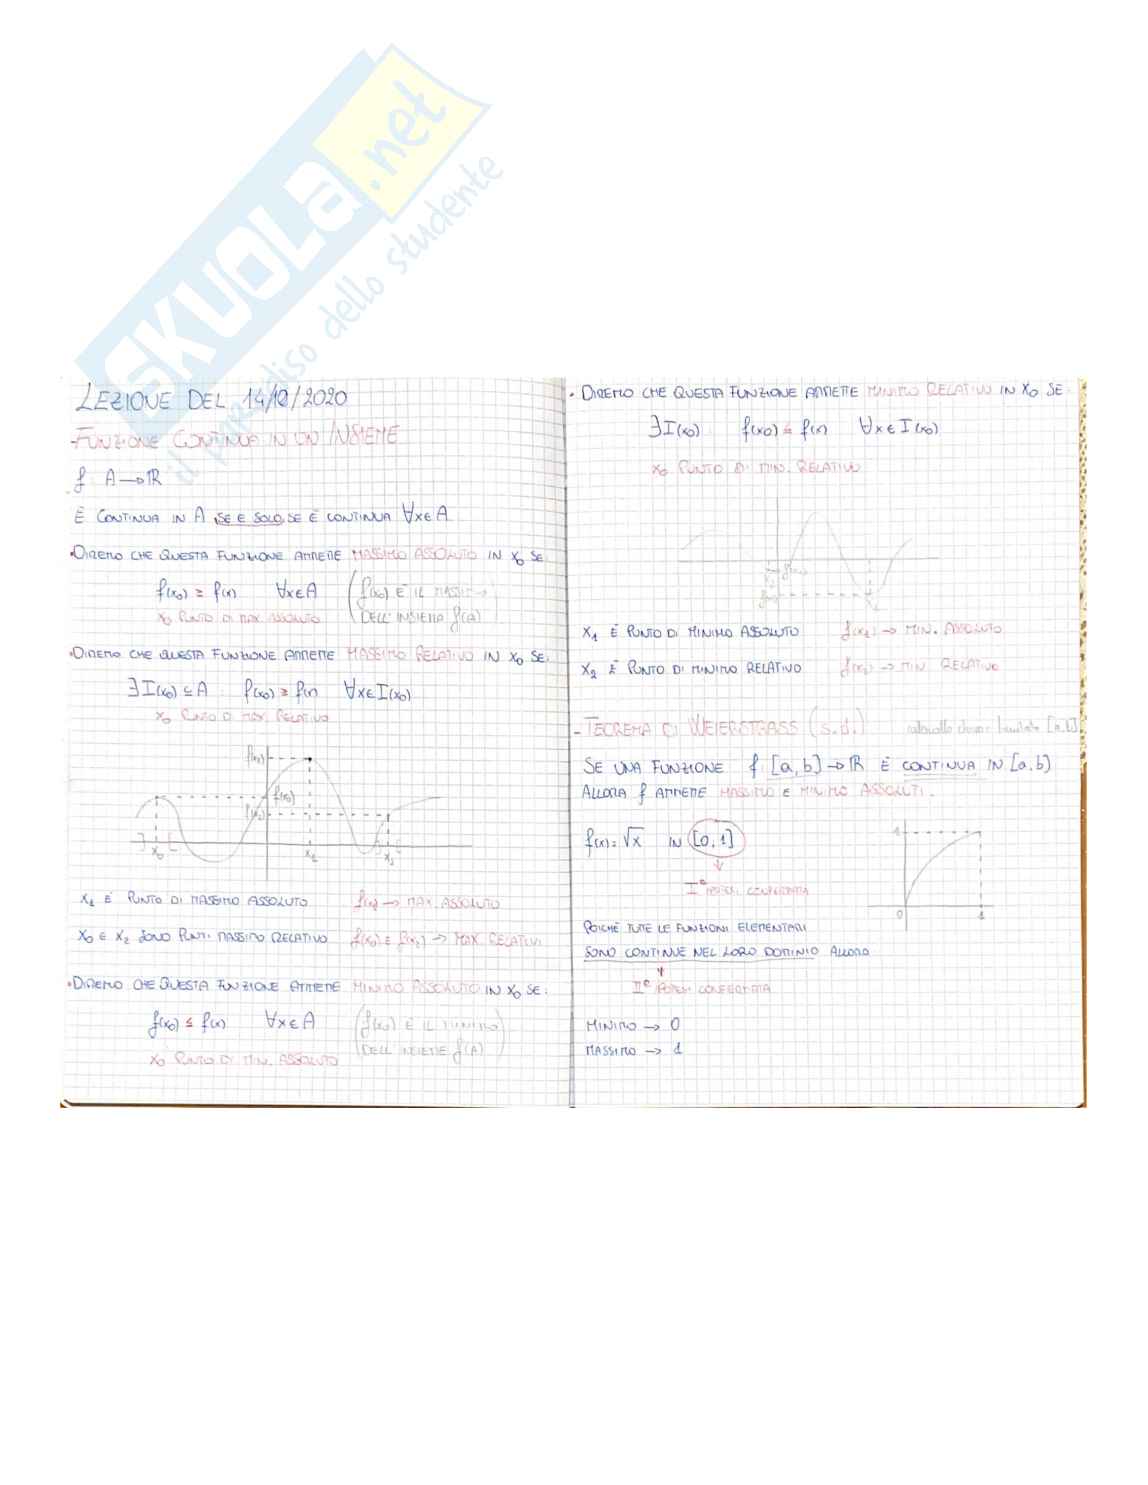 SKUOLA.net
il paradiso dello studente
LEZIONE DEL 14/10/2020
- FUNZIONE CONTINUA IN UN INSIEME
f: A → ℝ
È CONTINUA IN A SE E SOLO SE È CONTINUA ∀x∈A
• DIREMO CHE QUESTA FUNZIONE AMMETTE MASSIMO ASSOLUTO IN x₀ SE:
f(x₀) ≥ f(x) ∀x∈A (f(x₀) È IL MASSIMO
x₀ PUNTO DI MAX ASSOLUTO DELL'INSIEME f(A))
• DIREMO CHE QUESTA FUNZIONE AMMETTE MASSIMO RELATIVO IN x₀ SE:
∃I(x₀) ⊆ A f(x₀) ≥ f(x) ∀x∈I(x₀)
x₀ PUNTO DI MAX RELATIVO
f(x₁)
f(x₀)
f(x₂)
x₀ x₁ x₂
x₁ È PUNTO DI MASSIMO ASSOLUTO f(x₁) → MAX ASSOLUTO
x₀ E x₂ SONO PUNTI MASSIMO RELATIVO f(x₀) E f(x₂) → MAX RELATIVI
• DIREMO CHE QUESTA FUNZIONE AMMETTE MINIMO ASSOLUTO IN x₀ SE:
f(x₀) ≤ f(x) ∀x∈A (f(x₀) È IL MINIMO
x₀ PUNTO DI MIN. ASSOLUTO DELL'INSIEME f(A))
• DIREMO CHE QUESTA FUNZIONE AMMETTE MINIMO RELATIVO IN x₀ SE:
∃I(x₀) f(x₀) ≤ f(x) ∀x∈I(x₀)
x₀ PUNTO DI MIN. RELATIVO
x₁ È PUNTO DI MINIMO ASSOLUTO f(x₁) → MIN. ASSOLUTO
x₂ È PUNTO DI MINIMO RELATIVO f(x₂) → MIN RELATIVO
- TEOREMA DI WEIERSTRASS (s.d.) intervallo chiuso e limitato [a,b]
SE UNA FUNZIONE f: [a,b] → ℝ È CONTINUA IN [a,b]
ALLORA f AMMETTE MASSIMO E MINIMO ASSOLUTI.
f(x)=√x IN [0,1]
I° IPOTESI CONFERMATA
1
0 1
POICHÈ TUTTE LE FUNZIONI ELEMENTARI
SONO CONTINUE NEL LORO DOMINIO ALLORA
II° IPOTESI CONFERMATA
MINIMO → 0
MASSIMO → 1